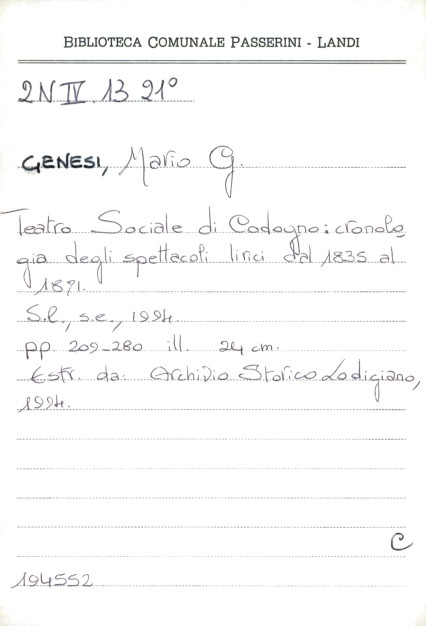 BIBLIOTECA COMUNALE PASSERINI - LANDI
2N IV. 13 21°
GENESI, Mario G.
Teatro Sociale di Codogno: cronolo
gia degli spettacoli lirici dal 1835 al
1891.
S.l., s.e., 1994.
pp. 209-280 ill. 24 cm.
Estr. da: Archivio Storico Lodigiano,
1994.
C
194552